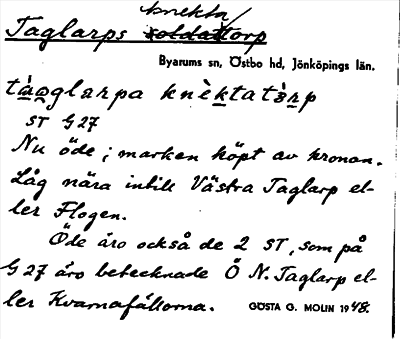 knekta/
Taglarps soldattorp
Byarums sn, Östbo hd, Jönköpings län.
tàɑglarpa knèktatɔ̀rp
ST G 27
Nu öde; marken köpt av kronan.
Låg nära intill Västra Taglarp el-
ler Flogen.
Öde äro också de 2 ST, som på
G 27 äro betecknade Ö N. Taglarp el-
ler Kvarnafällorna.
GÖSTA G. MOLIN 1948.